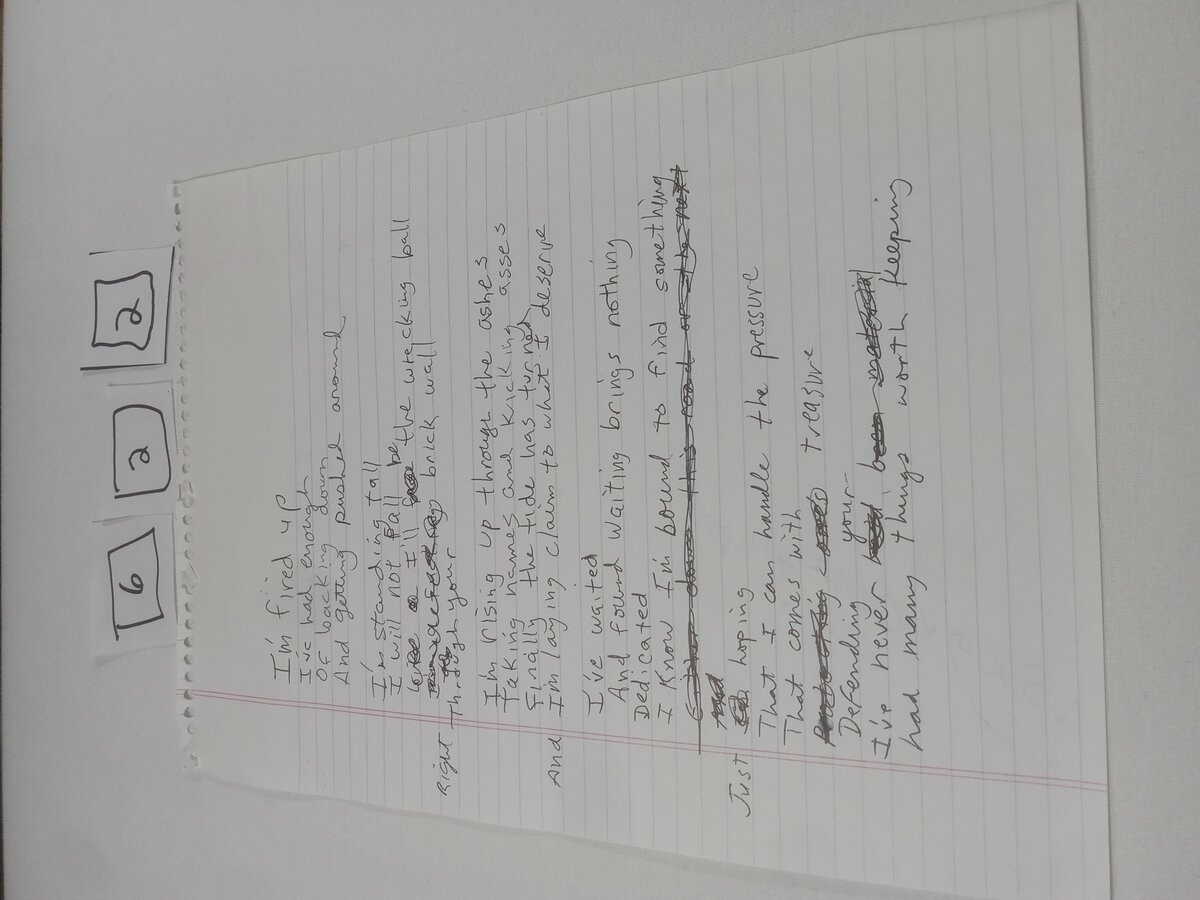 6 2 2
I'm fired up
I've had enough
Of backing down
And getting pushed around
I'm standing tall
I will not fall
I'll be the wrecking ball
Right Through your brick wall
I'm rising up through the ashes
Taking names and kicking asses
Finally the tide has turned
And I'm laying claim to what I deserve
I've waited
And found waiting brings nothing
Dedicated
I know I'm bound to find something
Either down this road or the next
Just hoping
That I can handle the pressure
That comes with
Defending your treasure
I've never had been material
had many things worth keeping